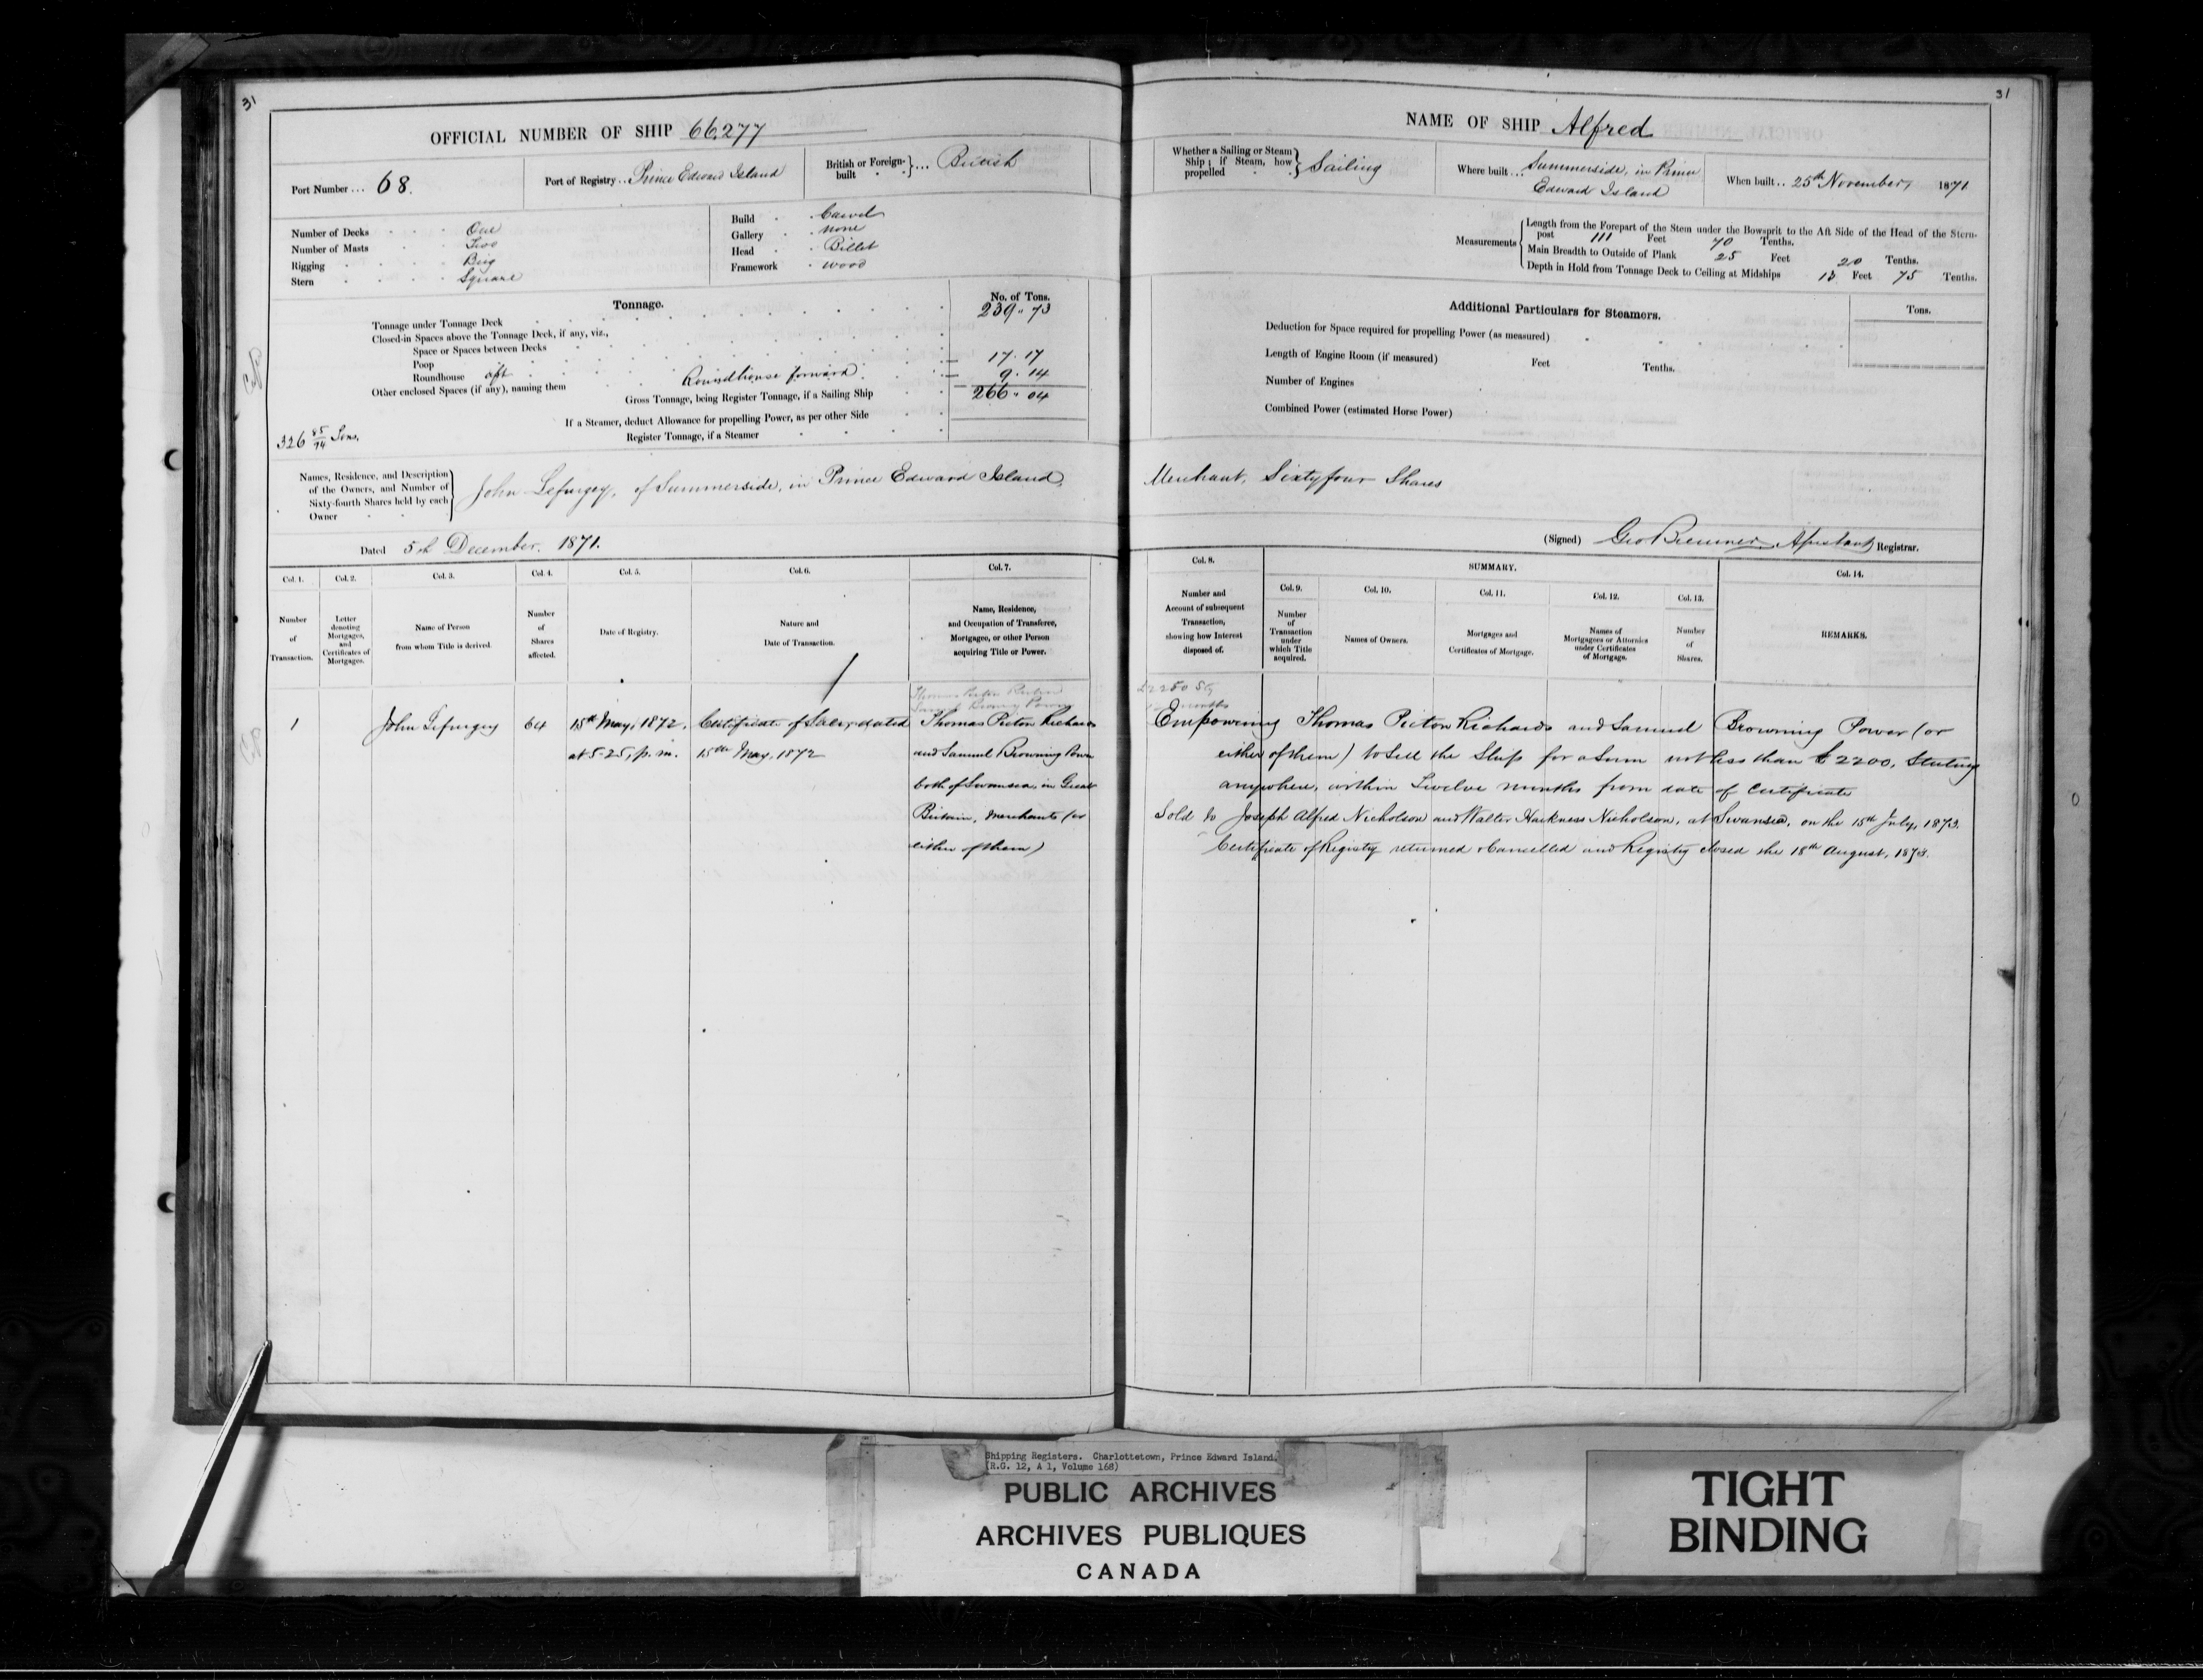 31
OFFICIAL NUMBER OF SHIP 66,277
Port Number ... 68.
Port of Registry .. Prince Edward Island
British or Foreign-built ... British
Number of Decks One
Number of Masts Two
Rigging Brig
Stern Square
Build Carvel
Gallery none
Head Billet
Framework wood
Tonnage.
No. of Tons.
Tonnage under Tonnage Deck 239 " 73
Closed-in Spaces above the Tonnage Deck, if any, viz.,
Space or Spaces between Decks
Poop
Roundhouse aft 17 . 17
Other enclosed Spaces (if any), naming them Roundhouse forward 9 . 14
Gross Tonnage, being Register Tonnage, if a Sailing Ship 266 " 04
If a Steamer, deduct Allowance for propelling Power, as per other Side
Register Tonnage, if a Steamer
326 85/94 Tons.
Names, Residence, and Description
of the Owners, and Number of
Sixty-fourth Shares held by each
Owner
John Lefurgey, of Summerside, in Prince Edward Island,
Dated 5th December. 1871.
Col. 1. Col. 2. Col. 3. Col. 4. Col. 5. Col. 6. Col. 7.
Number of Transaction.
Letter denoting Mortgages, and Certificates of Mortgages.
Name of Person from whom Title is derived.
Number of Shares affected.
Date of Registry.
Nature and Date of Transaction.
Name, Residence, and Occupation of Transferee, Mortgagee, or other Person acquiring Title or Power.
1 John Lefurgey 64 15th May, 1872, Certificate of Sale, dated Thomas Picton Richards
at 5-25, p.m. 15th May, 1872 and Samuel Browning Power
both of Swansea, in Great
Britain, Merchants (or
either of them)
31
NAME OF SHIP Alfred
Whether a Sailing or Steam Ship; if Steam, how propelled Sailing
Where built ... Summerside, in Prince
Edward Island
When built .. 25th November, 1871
Measurements
Length from the Forepart of the Stem under the Bowsprit to the Aft Side of the Head of the Stern-
post 111 Feet 70 Tenths.
Main Breadth to Outside of Plank 25 Feet 20 Tenths.
Depth in Hold from Tonnage Deck to Ceiling at Midships 13 Feet 75 Tenths.
Additional Particulars for Steamers.
Tons.
Deduction for Space required for propelling Power (as measured)
Length of Engine Room (if measured) Feet Tenths.
Number of Engines
Combined Power (estimated Horse Power)
Merchant, Sixty four Shares
(Signed) Geo Bremner, Assistant Registrar.
Col. 8. SUMMARY. Col. 14.
Col. 9. Col. 10. Col. 11. Col. 12. Col. 13.
Number and Account of subsequent Transaction, showing how Interest disposed of.
Number of Transaction under which Title acquired.
Names of Owners.
Mortgages and Certificates of Mortgage.
Names of Mortgagees or Attornies under Certificates of Mortgage.
Number of Shares.
REMARKS.
Empowering Thomas Picton Richards and Samuel Browning Power (or
either of them) to Sell the Ship for a Sum not less than £2200, Sterling
anywhere, within Twelve months from date of Certificate
Sold to Joseph Alfred Nicholson and Walter Harkness Nicholson, at Swansea, on the 15th July, 1873.
Certificate of Registry returned & Cancelled and Registry closed the 18th August, 1873.
Shipping Registers. Charlottetown, Prince Edward Island.
(R.G. 12, A 1, Volume 168)
PUBLIC ARCHIVES
ARCHIVES PUBLIQUES
CANADA
TIGHT
BINDING